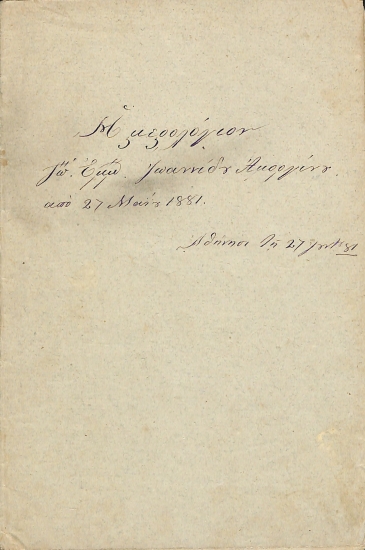 Ἡμερολόγιον
Ἰω. Ἐμμ. Ἰωαννίδου Ἀμοργίνου
ἀπὸ 27 Μαΐου 1881.
Ἀθήνησι τῇ 27 81